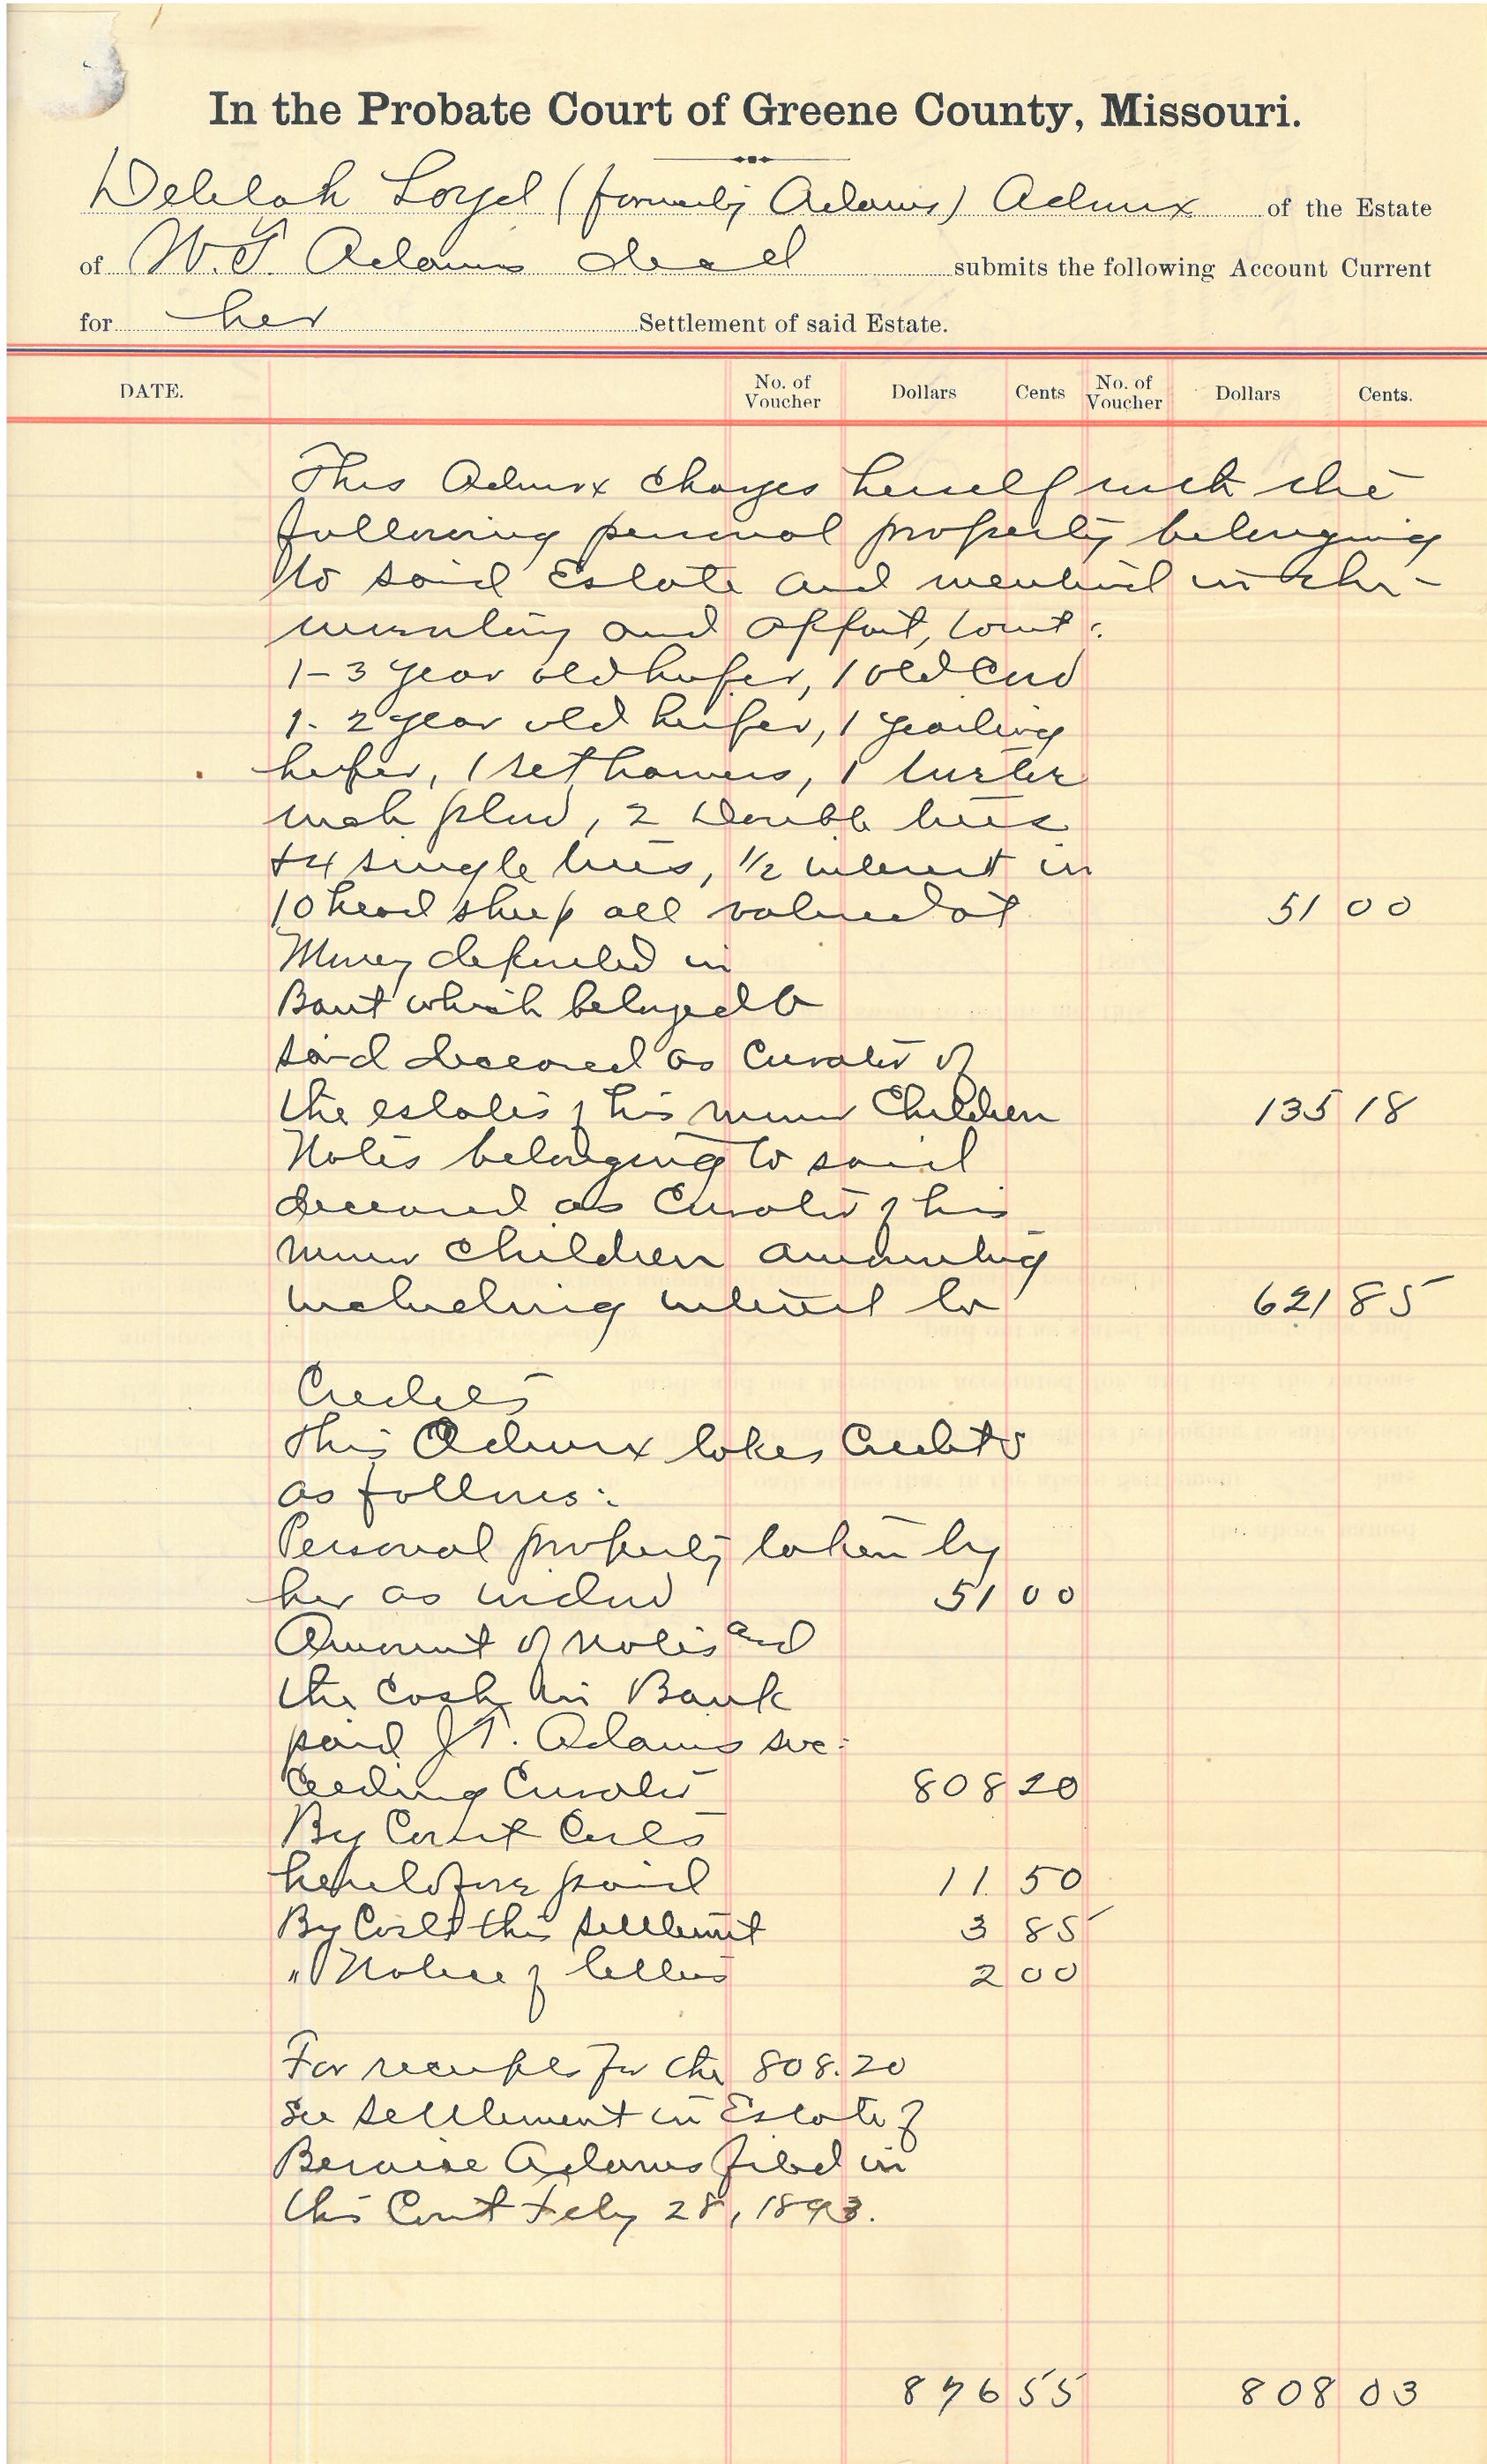 In the Probate Court of Greene County, Missouri.
Delilah Loyd (formerly Adams) Admrx of the Estate
of W. T. Adams decd submits the following Account Current
for her Settlement of said Estate.
DATE. No. of Voucher Dollars Cents No. of Voucher Dollars Cents.
This Admrx charges herself with the
following personal property belonging
to said Estate and mentioned in the in-
ventory and appmt, towit:
1-3 year old heifer, 1 old Cow
1- 2 year old heifer, 1 yearling
heifer, 1 set harness, 1 twelve
inch plow, 2 Double trees
+4 single trees, 1/2 interest in
10 head sheep all valued at 51 00
Money deposited in
Bank which belonged to
said deceased as Curator of
the estates of his minor Children 135 18
Notes belonging to said
deceased as Curator of his
minor children amounting
including interest to 621 85
Credits
This Admrx takes Credits
as follows:
Personal property taken by
her as widow 51 00
Amount of notes and
the Cash in Bank
paid J T. Adams suc-
ceeding Curator 808 20
By Court Costs
heretofore paid 11. 50
By Costs this settlement 3 85
" Notice of letters 2 00
For receipts for the 808.20
see settlement in Estate of
Bernice Adams filed in
this Court Feby 28, 1893.
876 55 808 03